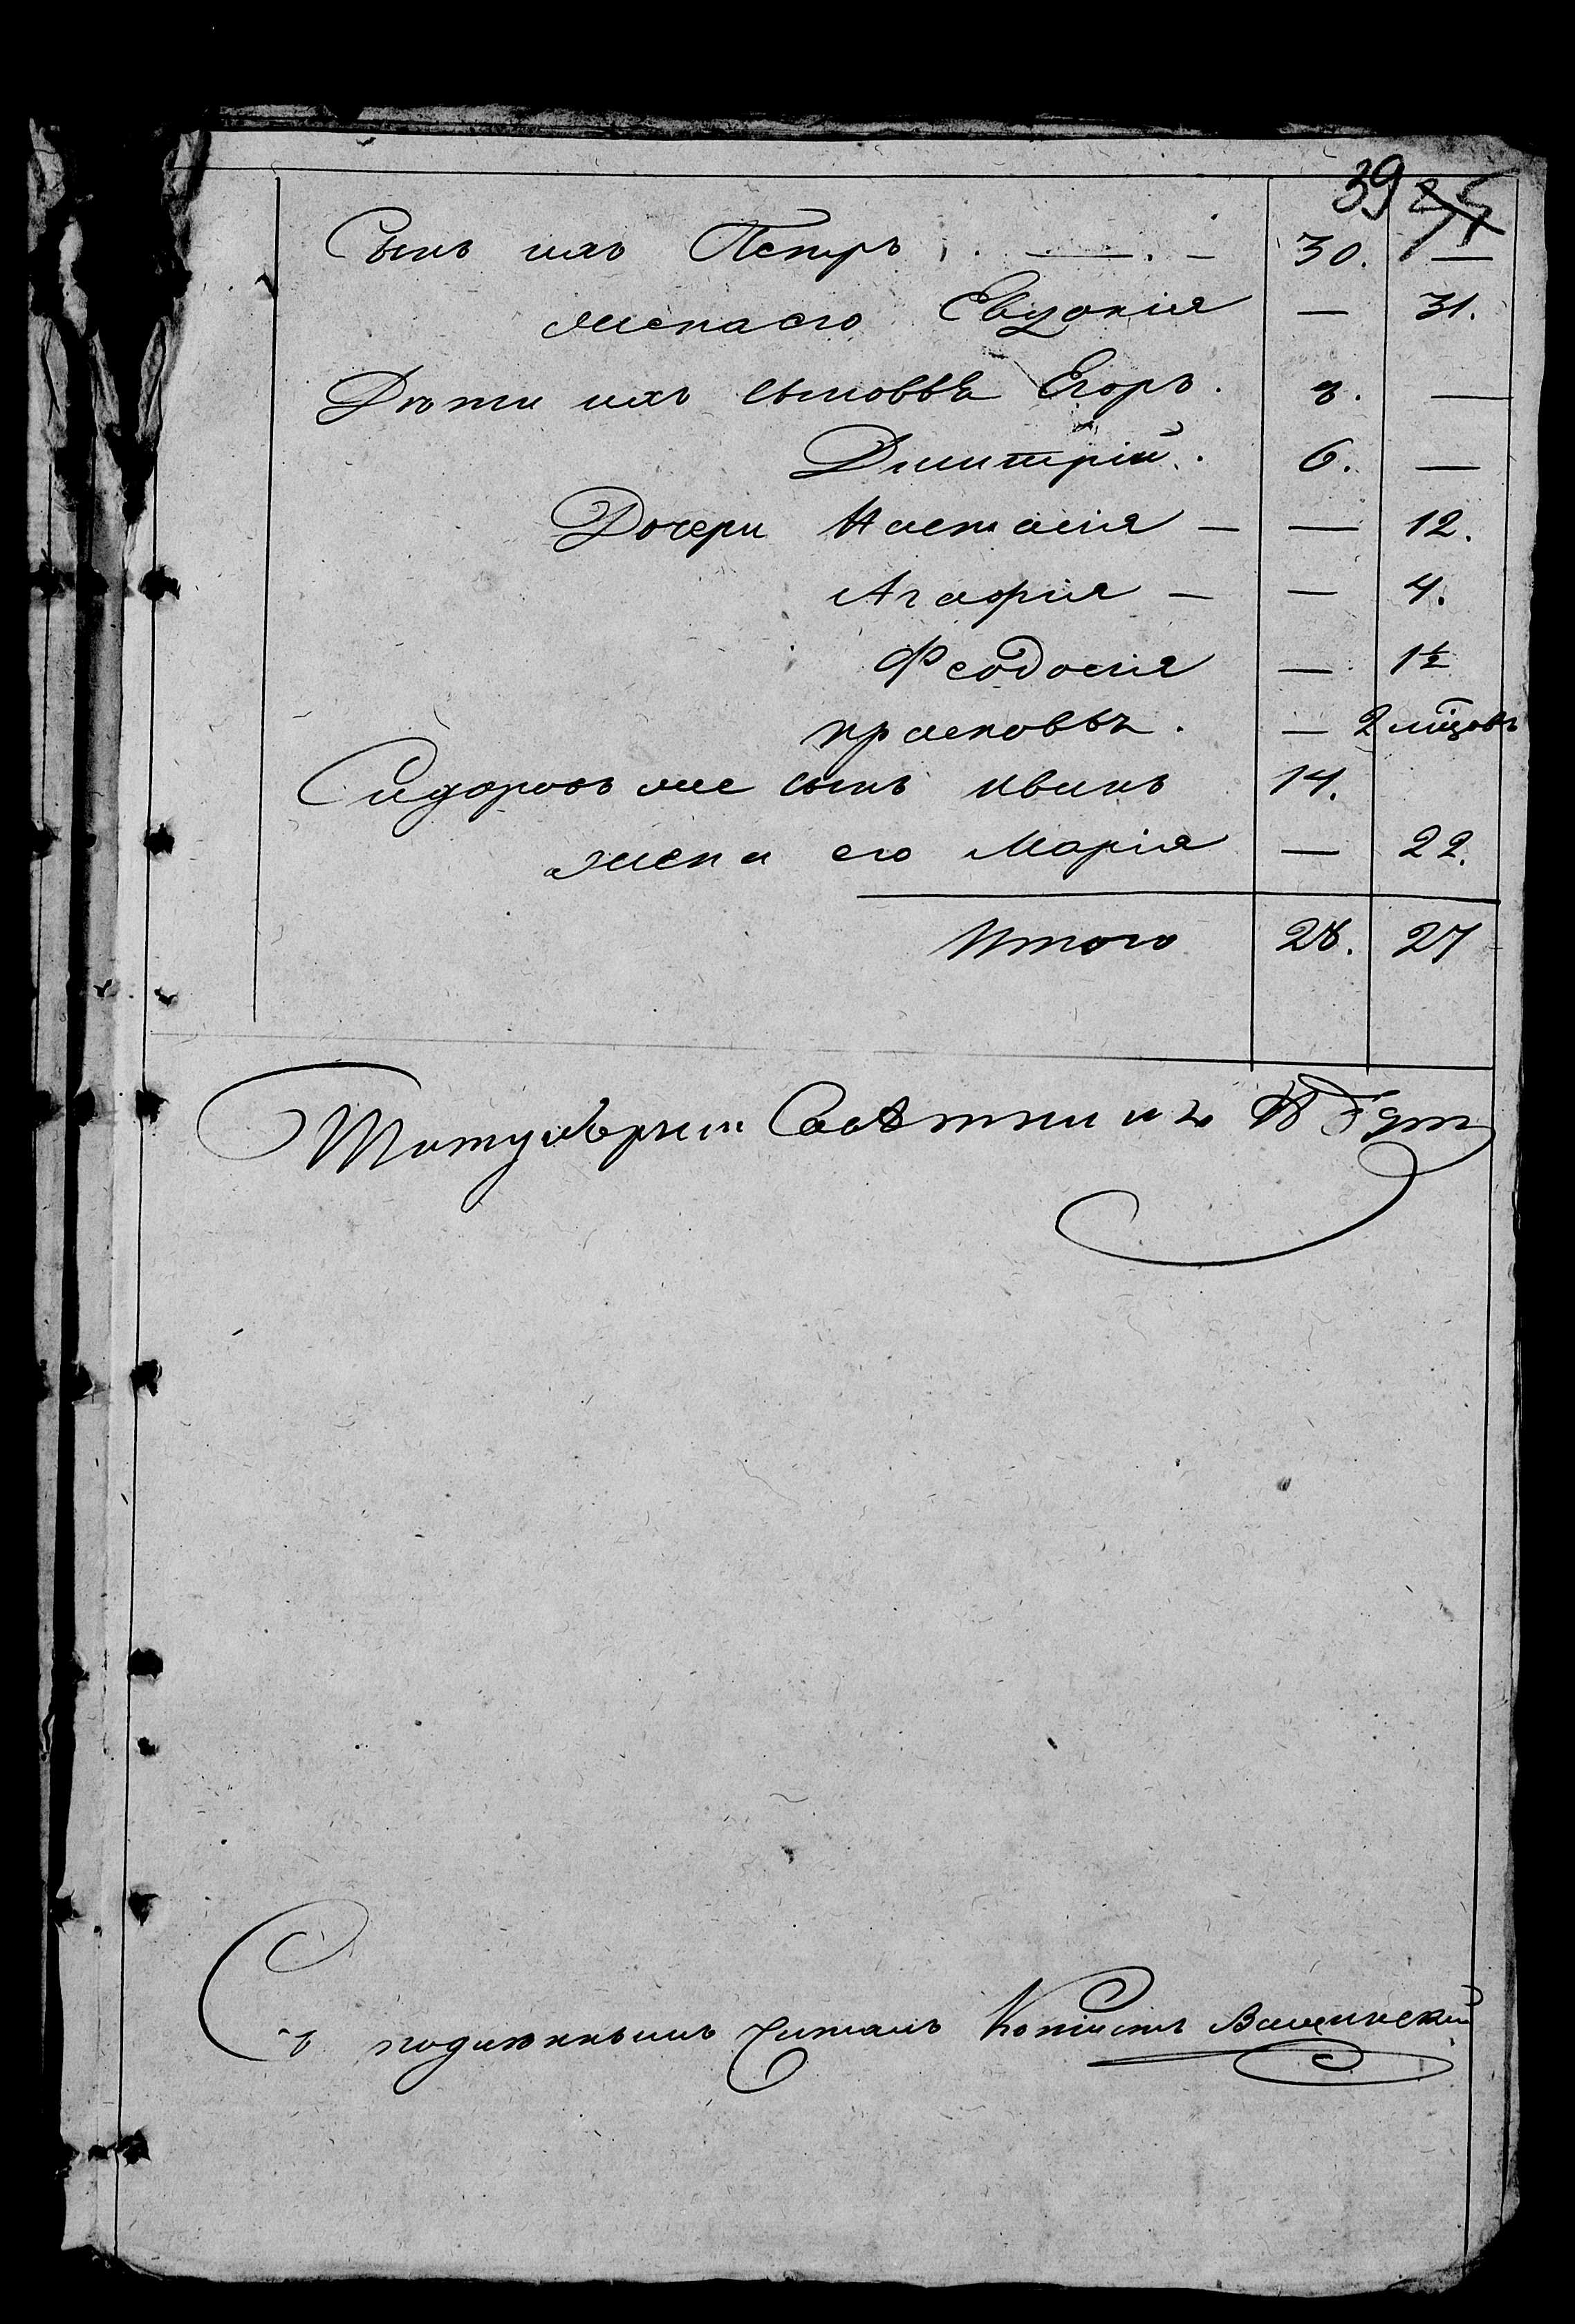 39
Сынъ ихъ Петръ . — . — 30. —
жена его Евдокія — 31.
Дѣти ихъ сыновья Егоръ. 8. —
Дмитрій. 6. —
Дочери Настасія — — 12.
Агафия — — 4.
Феодосія — 1½
прасковья. — 2 мѣсцовъ
Сидоровъ же сынъ иванъ 14.
жена его Марія — 22.
Итого 28. 27
Титулярный Совѣтникъ
Съ подлиннымъ читалъ Копіистъ